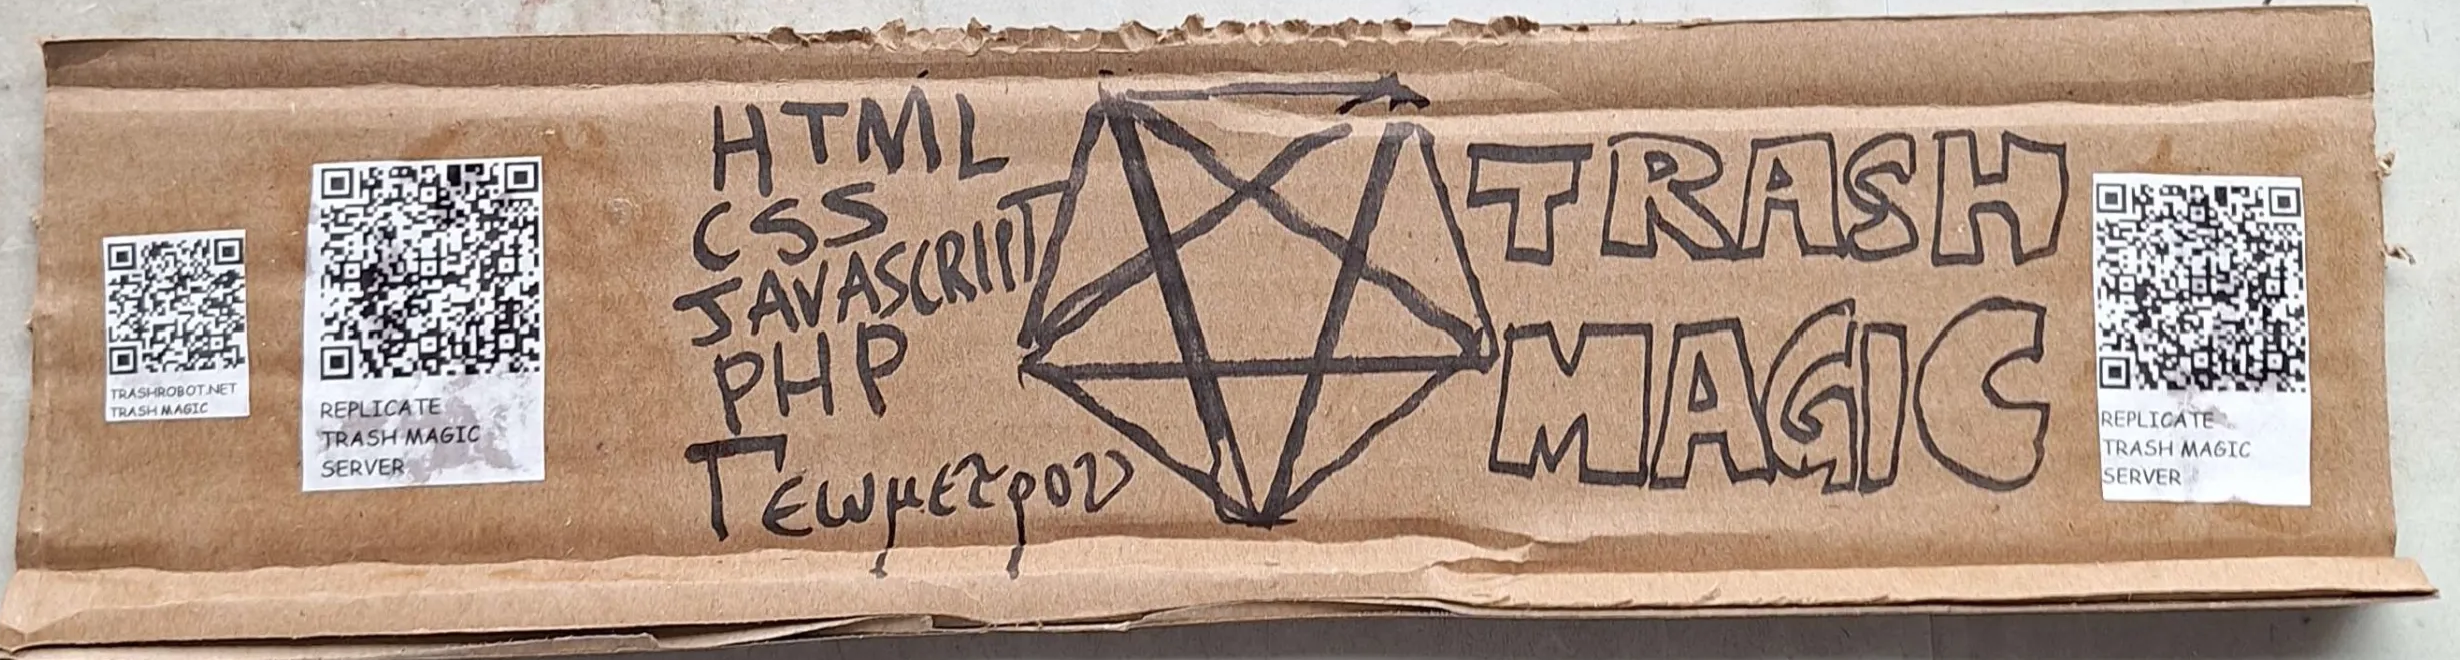 TRASHROBOT.NET
TRASH MAGIC
REPLICATE
TRASH MAGIC
SERVER
HTML
CSS
JAVASCRIPT
PHP
Γεωμετρου
TRASH
MAGIC
REPLICATE
TRASH MAGIC
SERVER